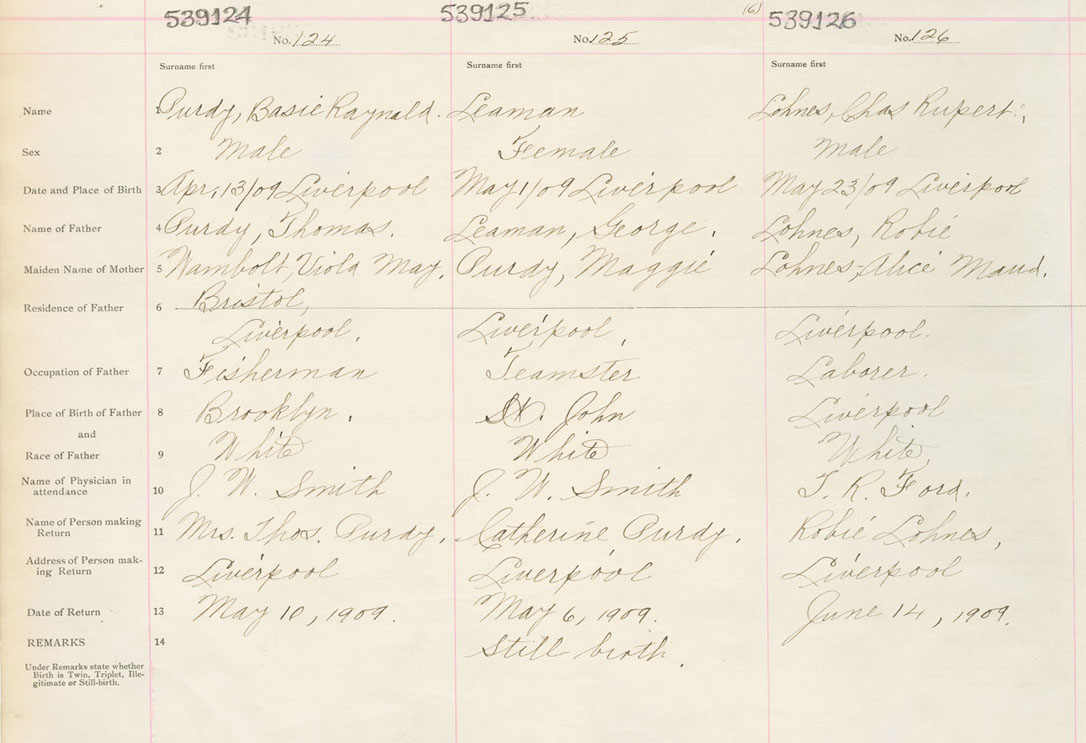 539124 539125 (6) 539126
No. 124 No. 125 No. 126
Surname first Surname first Surname first
Name 1 Purdy, Basie Raynald. Leaman Lohnes, Chas Rupert.,
Sex 2 Male Female Male
Date and Place of Birth 3 Apr, 13/09 Liverpool May 1/09 Liverpool May 23/09 Liverpool
Name of Father 4 Purdy, Thomas. Leaman, George. Lohnes, Robie
Maiden Name of Mother 5 Wambolt, Viola May. Purdy, Maggie Lohnes, Alice Maud.
Residence of Father 6 Bristol,
Liverpool. Liverpool, Liverpool.
Occupation of Father 7 Fisherman Teamster Laborer.
Place of Birth of Father 8 Brooklyn. St. John Liverpool
and
Race of Father 9 White White White,
Name of Physician in
attendance 10 J. W. Smith J. W. Smith T. R. Ford.
Name of Person making
Return 11 Mrs. Thos. Purdy. Catherine Purdy. Robie Lohnes,
Address of Person mak-
ing Return 12 Liverpool Liverpool Liverpool
Date of Return 13 May 10, 1909. May 6, 1909. June 14, 1909.
REMARKS 14 Still birth.
Under Remarks state whether
Birth is Twin, Triplet, Ille-
gitimate or Still-birth.